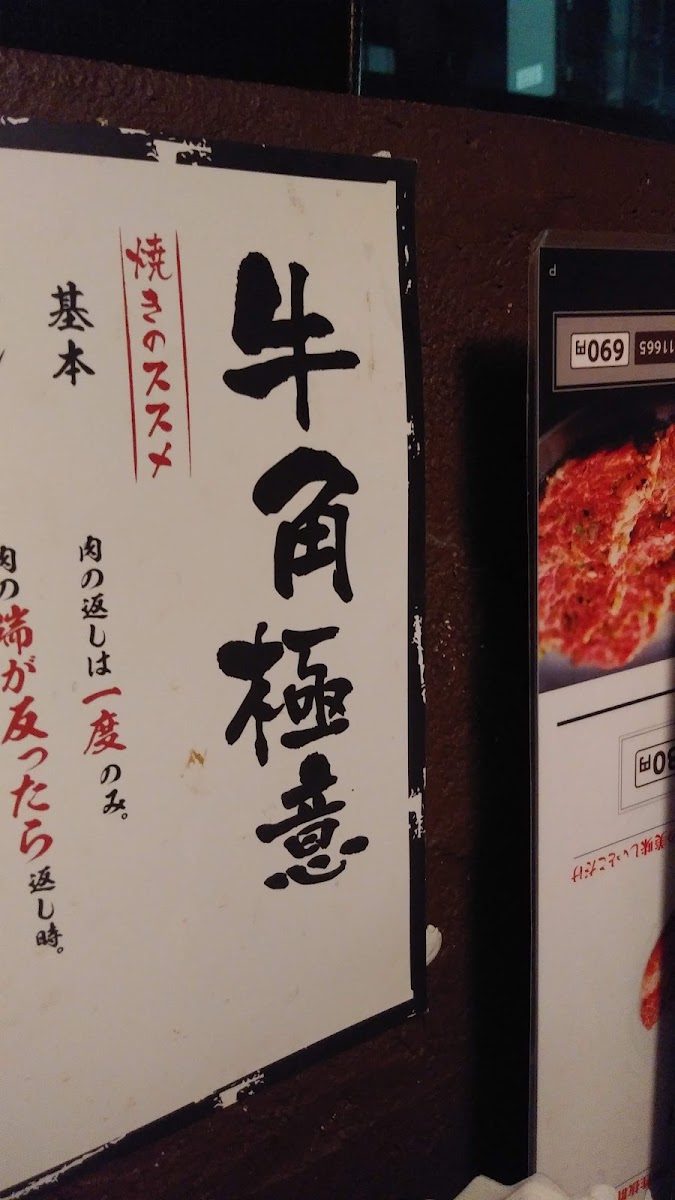 牛角極意
焼きのススメ
基本
肉の返しは一度のみ。
肉の端が反ったら返し時。
690円
11665
80円
美味しいとこだけ